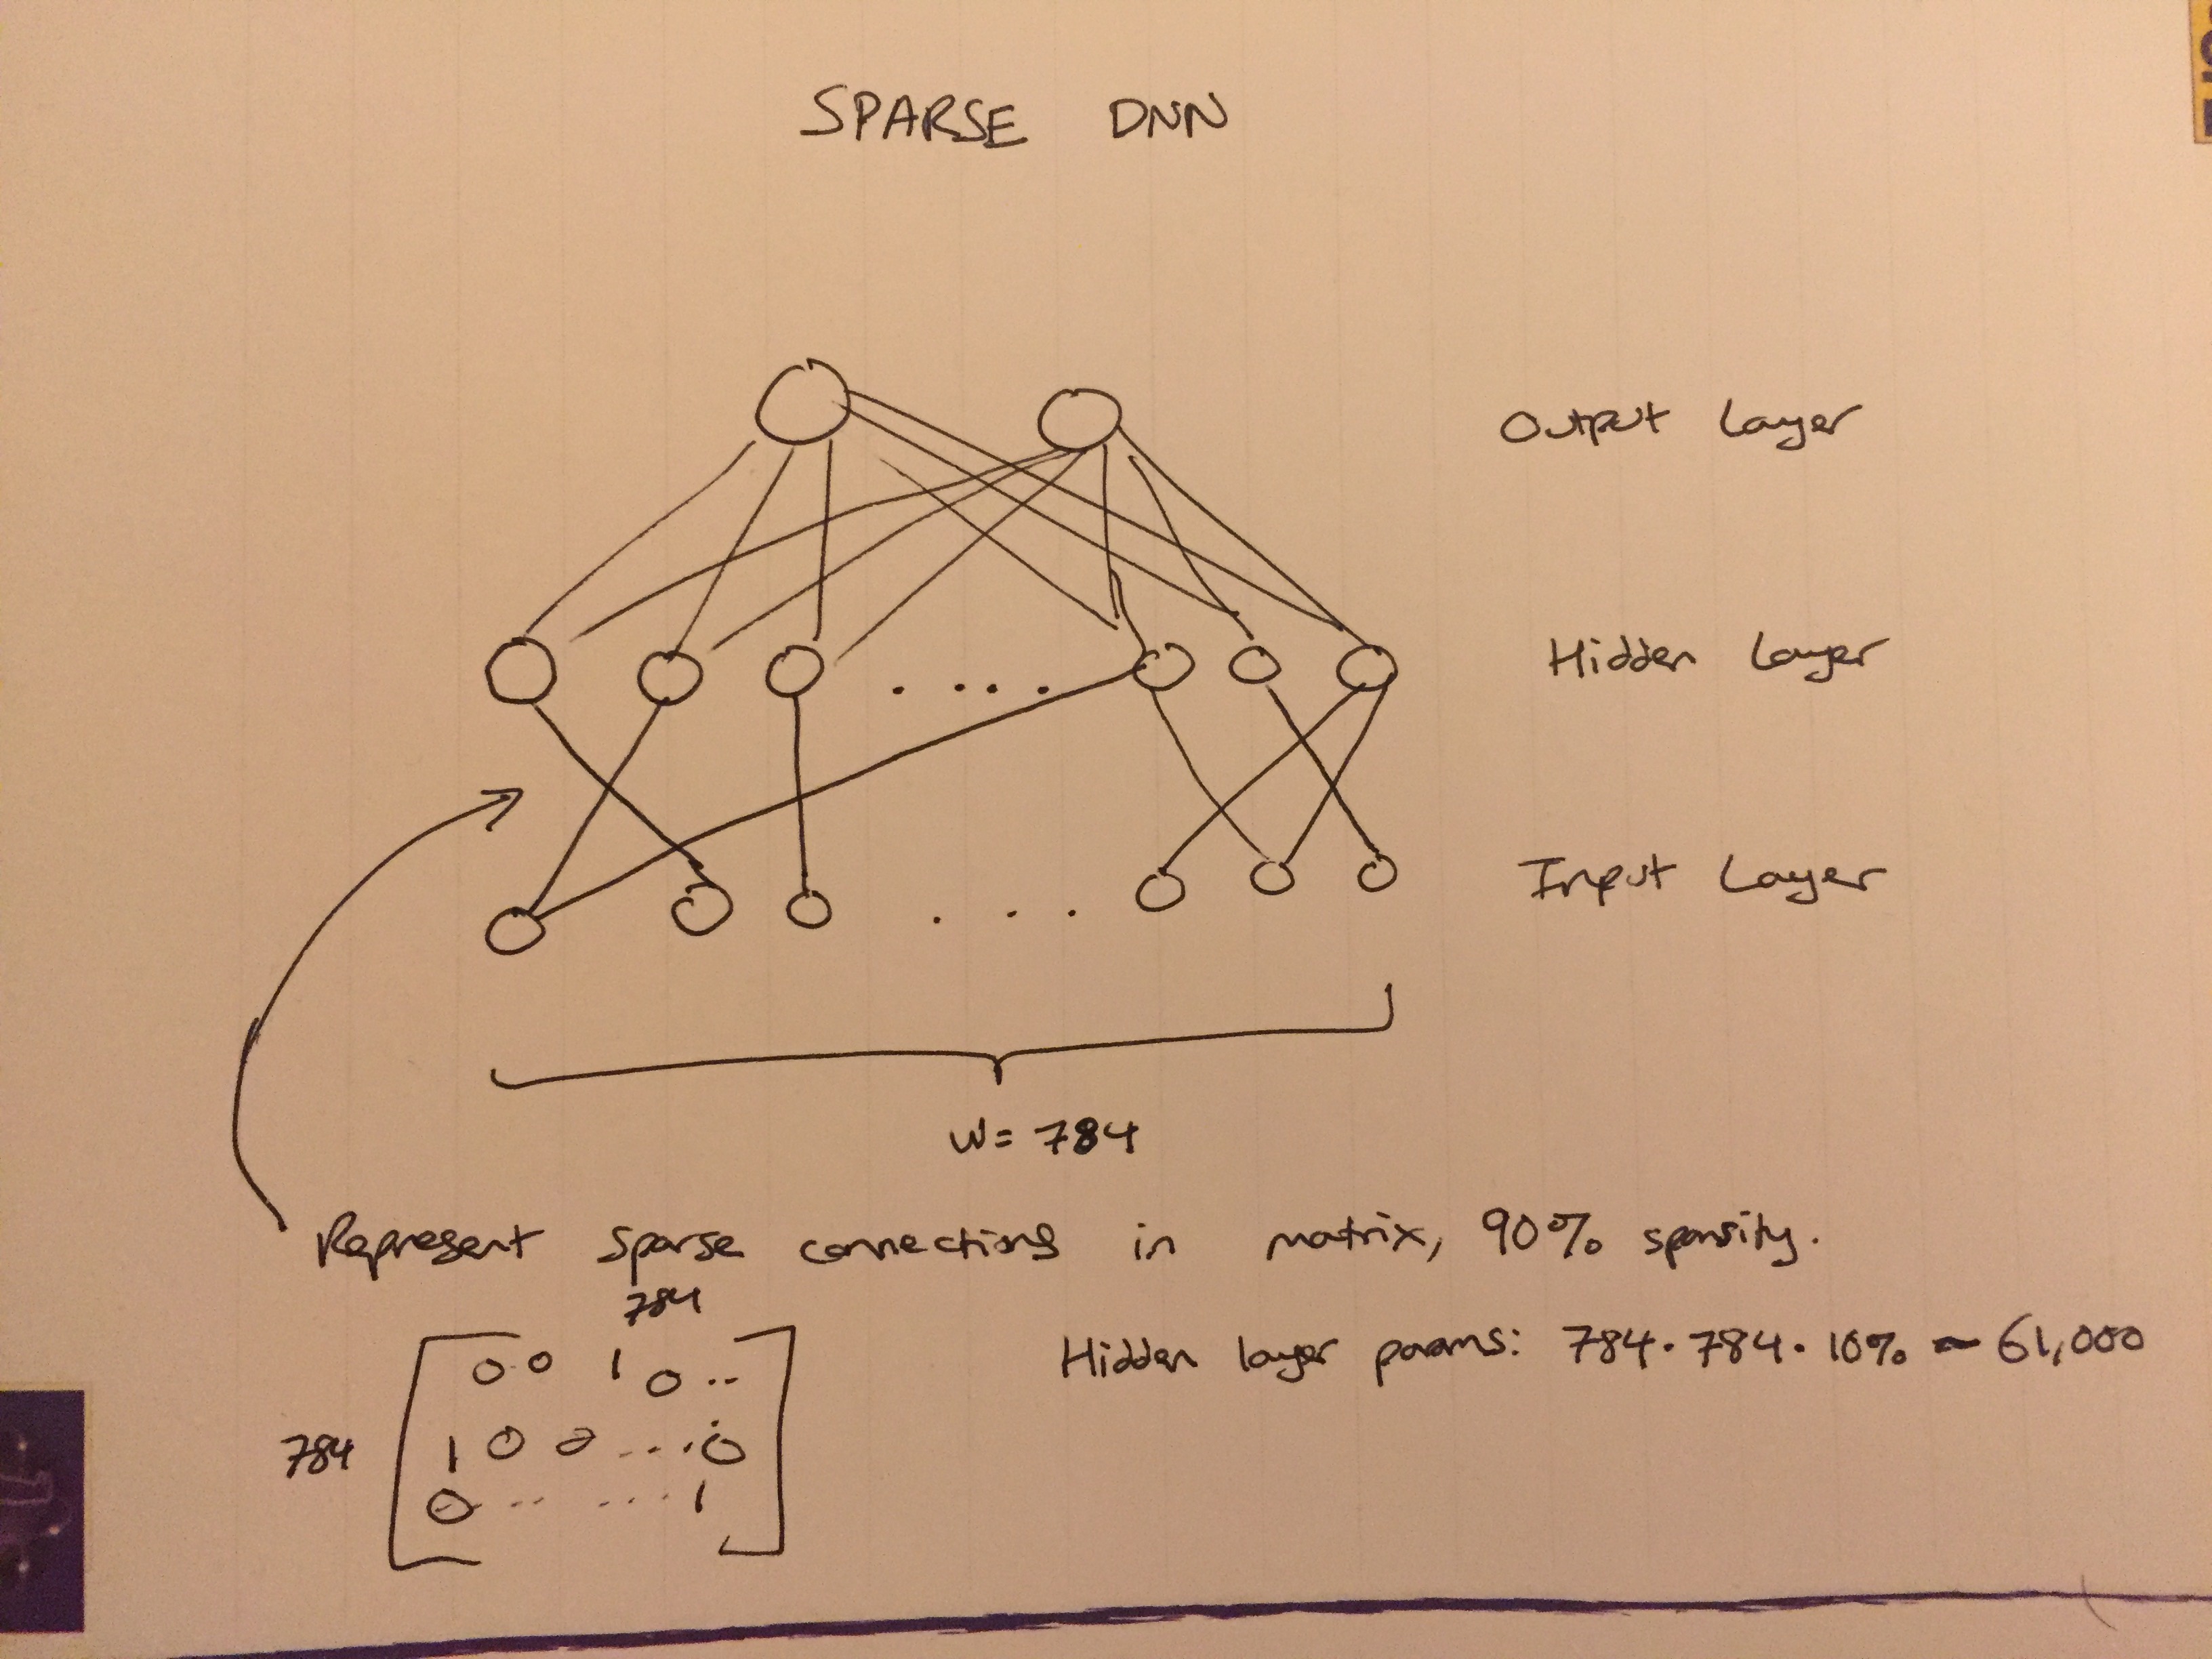 SPARSE DNN
Output Layer
Hidden Layer
. . . .
Input Layer
. . .
W= 784
Represent sparse connections in matrix, 90% sparsity.
784
Hidden layer params: 784 · 784 · 10% ~ 61,000
0 0 1 0 ..
784
1 0 0 ... 0
0 .. ... 1